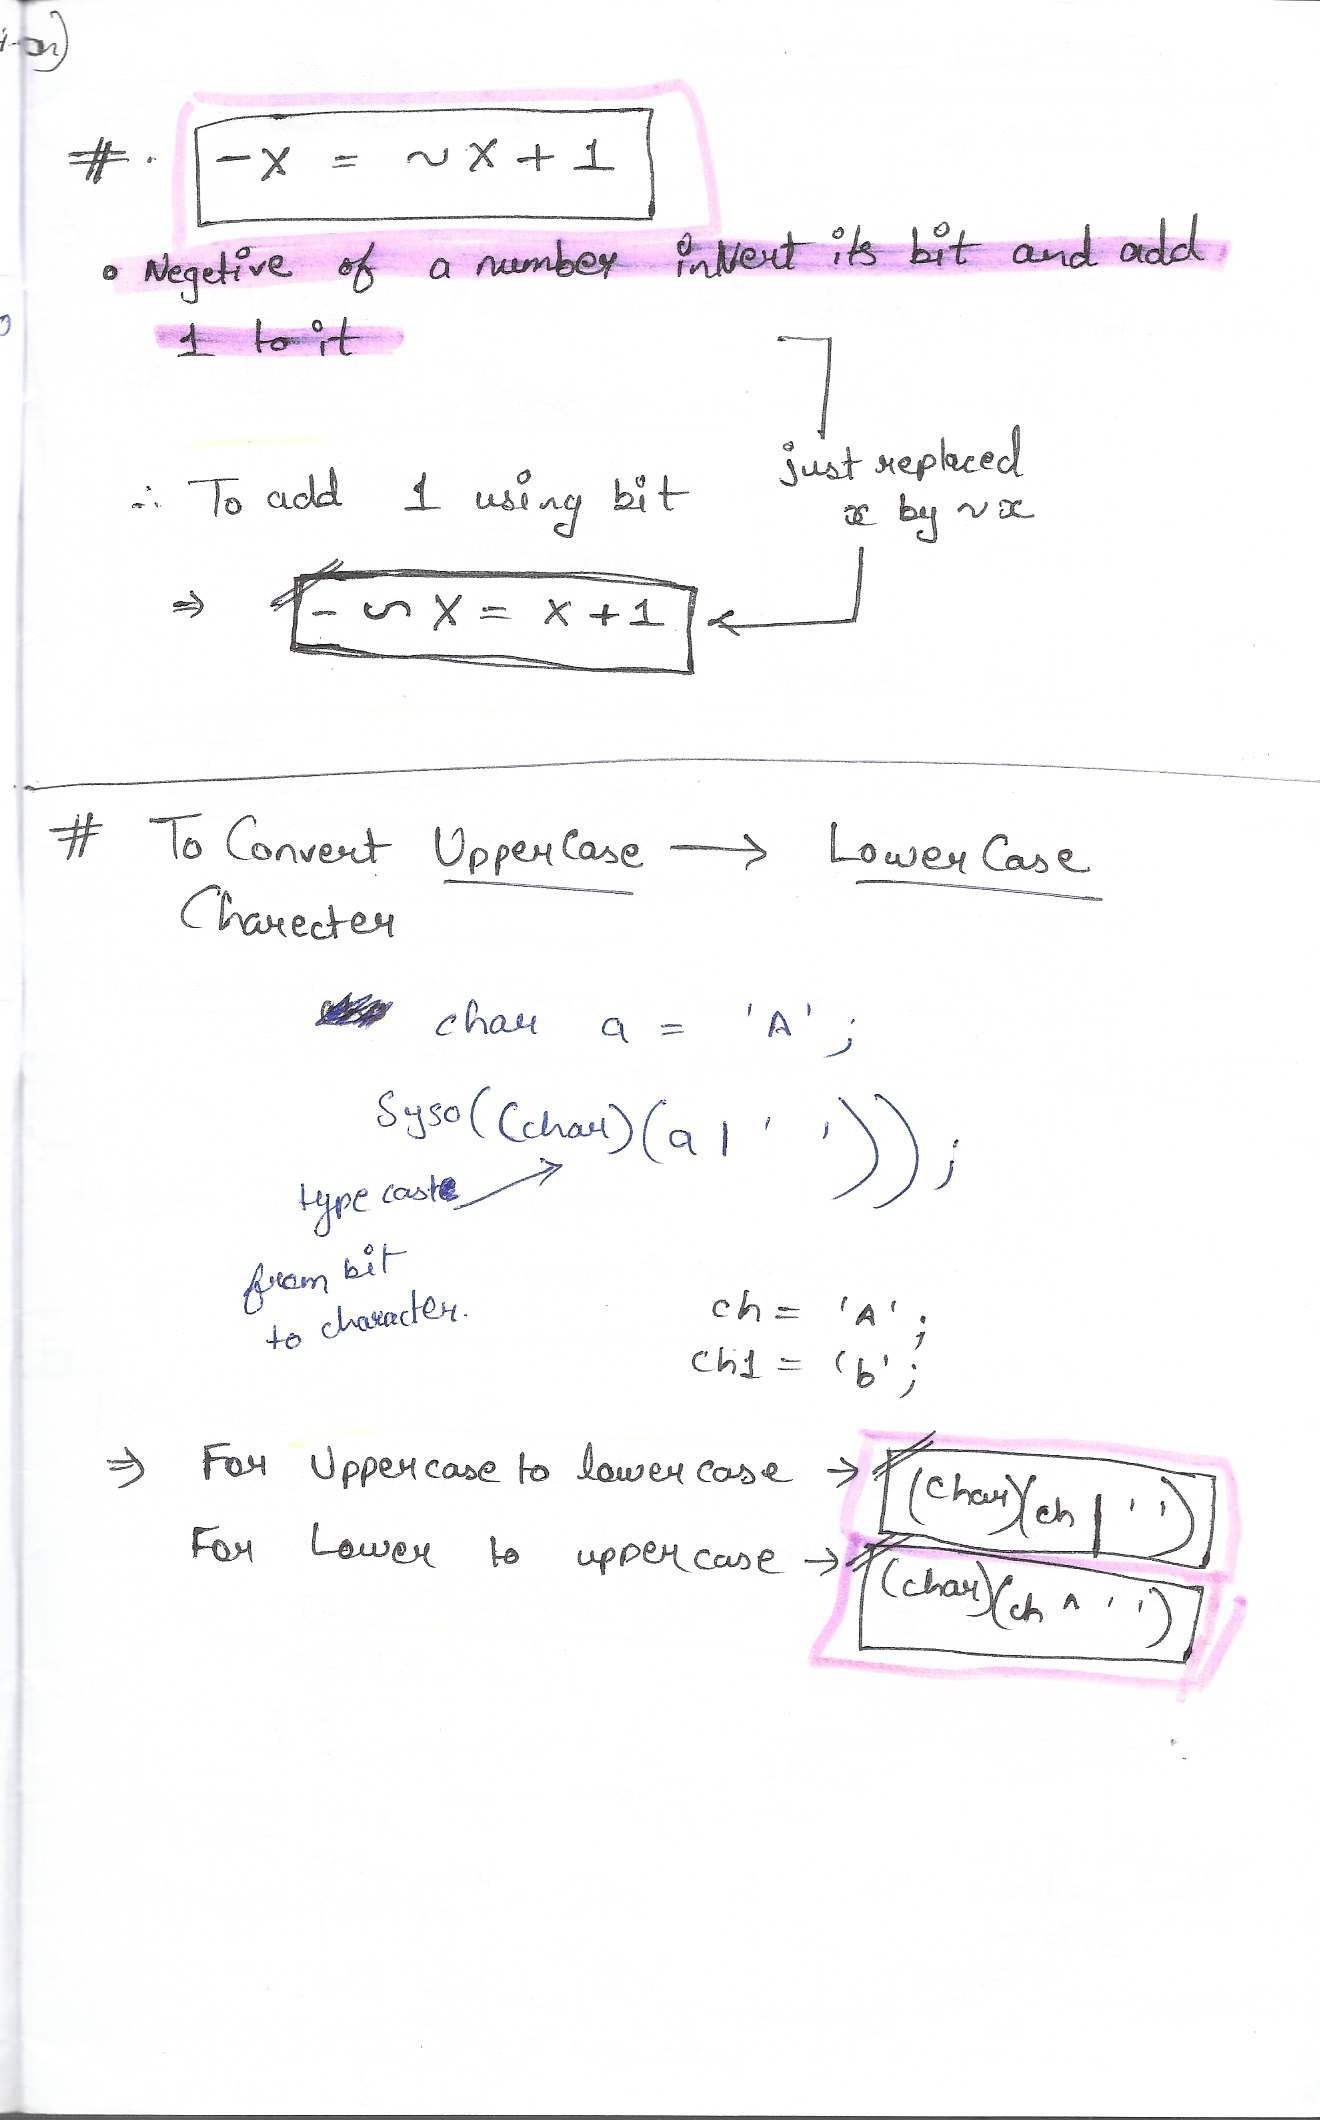 # . -X = ~X + 1
• Negetive of a number invert its bit and add
1 to it
just replaced
x by ~x
∴ To add 1 using bit
⇒ - ~X = X + 1
# To Convert UpperCase → LowerCase
Charecter
char a = 'A';
Syso((char)(a | ' '));
type caste
from bit
to character.
ch = 'A';
ch1 = 'b';
⇒ For Uppercase to lowercase → (char)(ch | ' ')
For Lower to uppercase → (char)(ch ^ ' ')